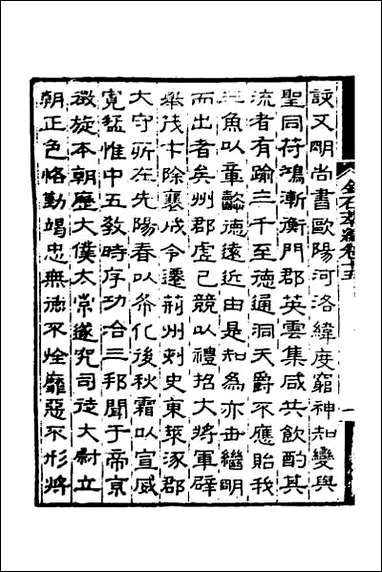 該又明尚書歐陽河洛緯度窮神知變與
聖同符鴻漸衡門郡英雲集咸共飲酌其
流者有踰三千至德通洞天爵不應貽我
三魚以章懿德遠近由是知為亦世繼明
而出者矣州郡虛己競以禮招大將軍辟
舉茂才除襄城令遷荊州刺史東萊涿郡
大守所在先陽春以布化後秋霜以宣威
寬猛惟中五教時序功洽三邦聞于帝京
徵旋本朝歷大僕太常遂究司徒大尉立
朝正色恪勤竭忠無德不旌靡惡不形將
金石萃編卷十五
一